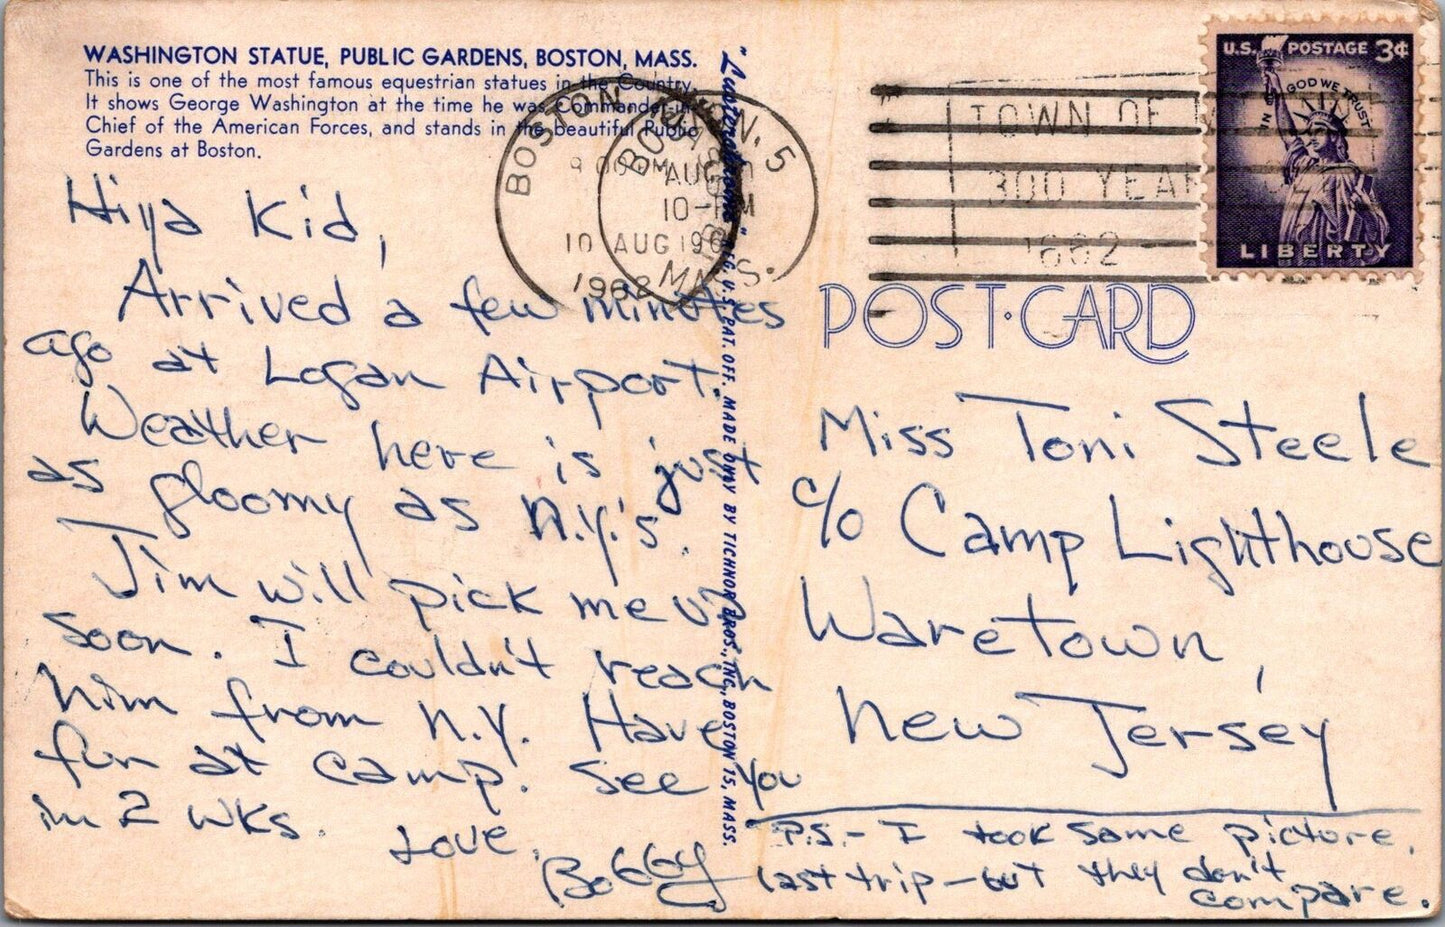 WASHINGTON STATUE, PUBLIC GARDENS, BOSTON, MASS.
This is one of the most famous equestrian statues in the Country.
It shows George Washington at the time he was Commander-in-
Chief of the American Forces, and stands in the beautiful Public
Gardens at Boston.
Hiya Kid,
Arrived a few minutes
ago at Logan Airport.
Weather here is just
as gloomy as N.Y.'s.
Jim will pick me up
soon. I couldn't reach
him from N.Y. Have
fun at camp. See you
in 2 wks.
Love,
Bobby
"Lustrochrome" REG. U.S. PAT. OFF. MADE ONLY BY TICHNOR BROS., INC., BOSTON 15, MASS.
BOSTON, 5
AUG
10-PM
MASS.
BOSTON
10 AUG
1962
TOWN OF
300 YEAR
1662
U.S. POSTAGE 3¢
IN GOD WE TRUST
LIBERTY
POST·CARD
Miss Toni Steele
c/o Camp Lighthouse
Waretown,
New Jersey
P.S. - I took same picture,
last trip - but they don't
compare.